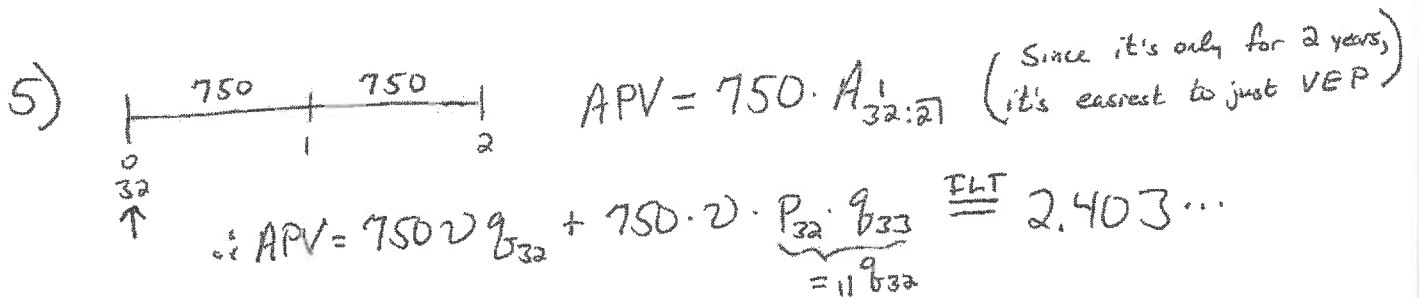 5) 750 750 APV = 750 · A¹32:2̅| (Since it's only for 2 years, it's easiest to just VEP)
0 1 2
32
↑
∴ APV = 750 v q32 + 750 · v · P32 · q33 ILT = 2.403...
= ₁|q32